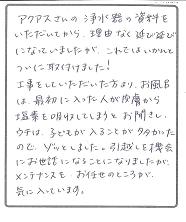 アクアスさんの浄水器の資料を
いただいてから、理由なく延び延び
になっていましたが、これではいかんと
ついに取付けました!
工事をしていただいた方より、お風呂
は、最初に入った人が皮膚から
塩素を吸収してしまうとお聞きし、
ウチは、子どもが入ることが多かった
ので、ゾッとしました。引越しを機会
にお世話になることになりましたが、
メンテナンスも、お任せのところが、
気に入っています。